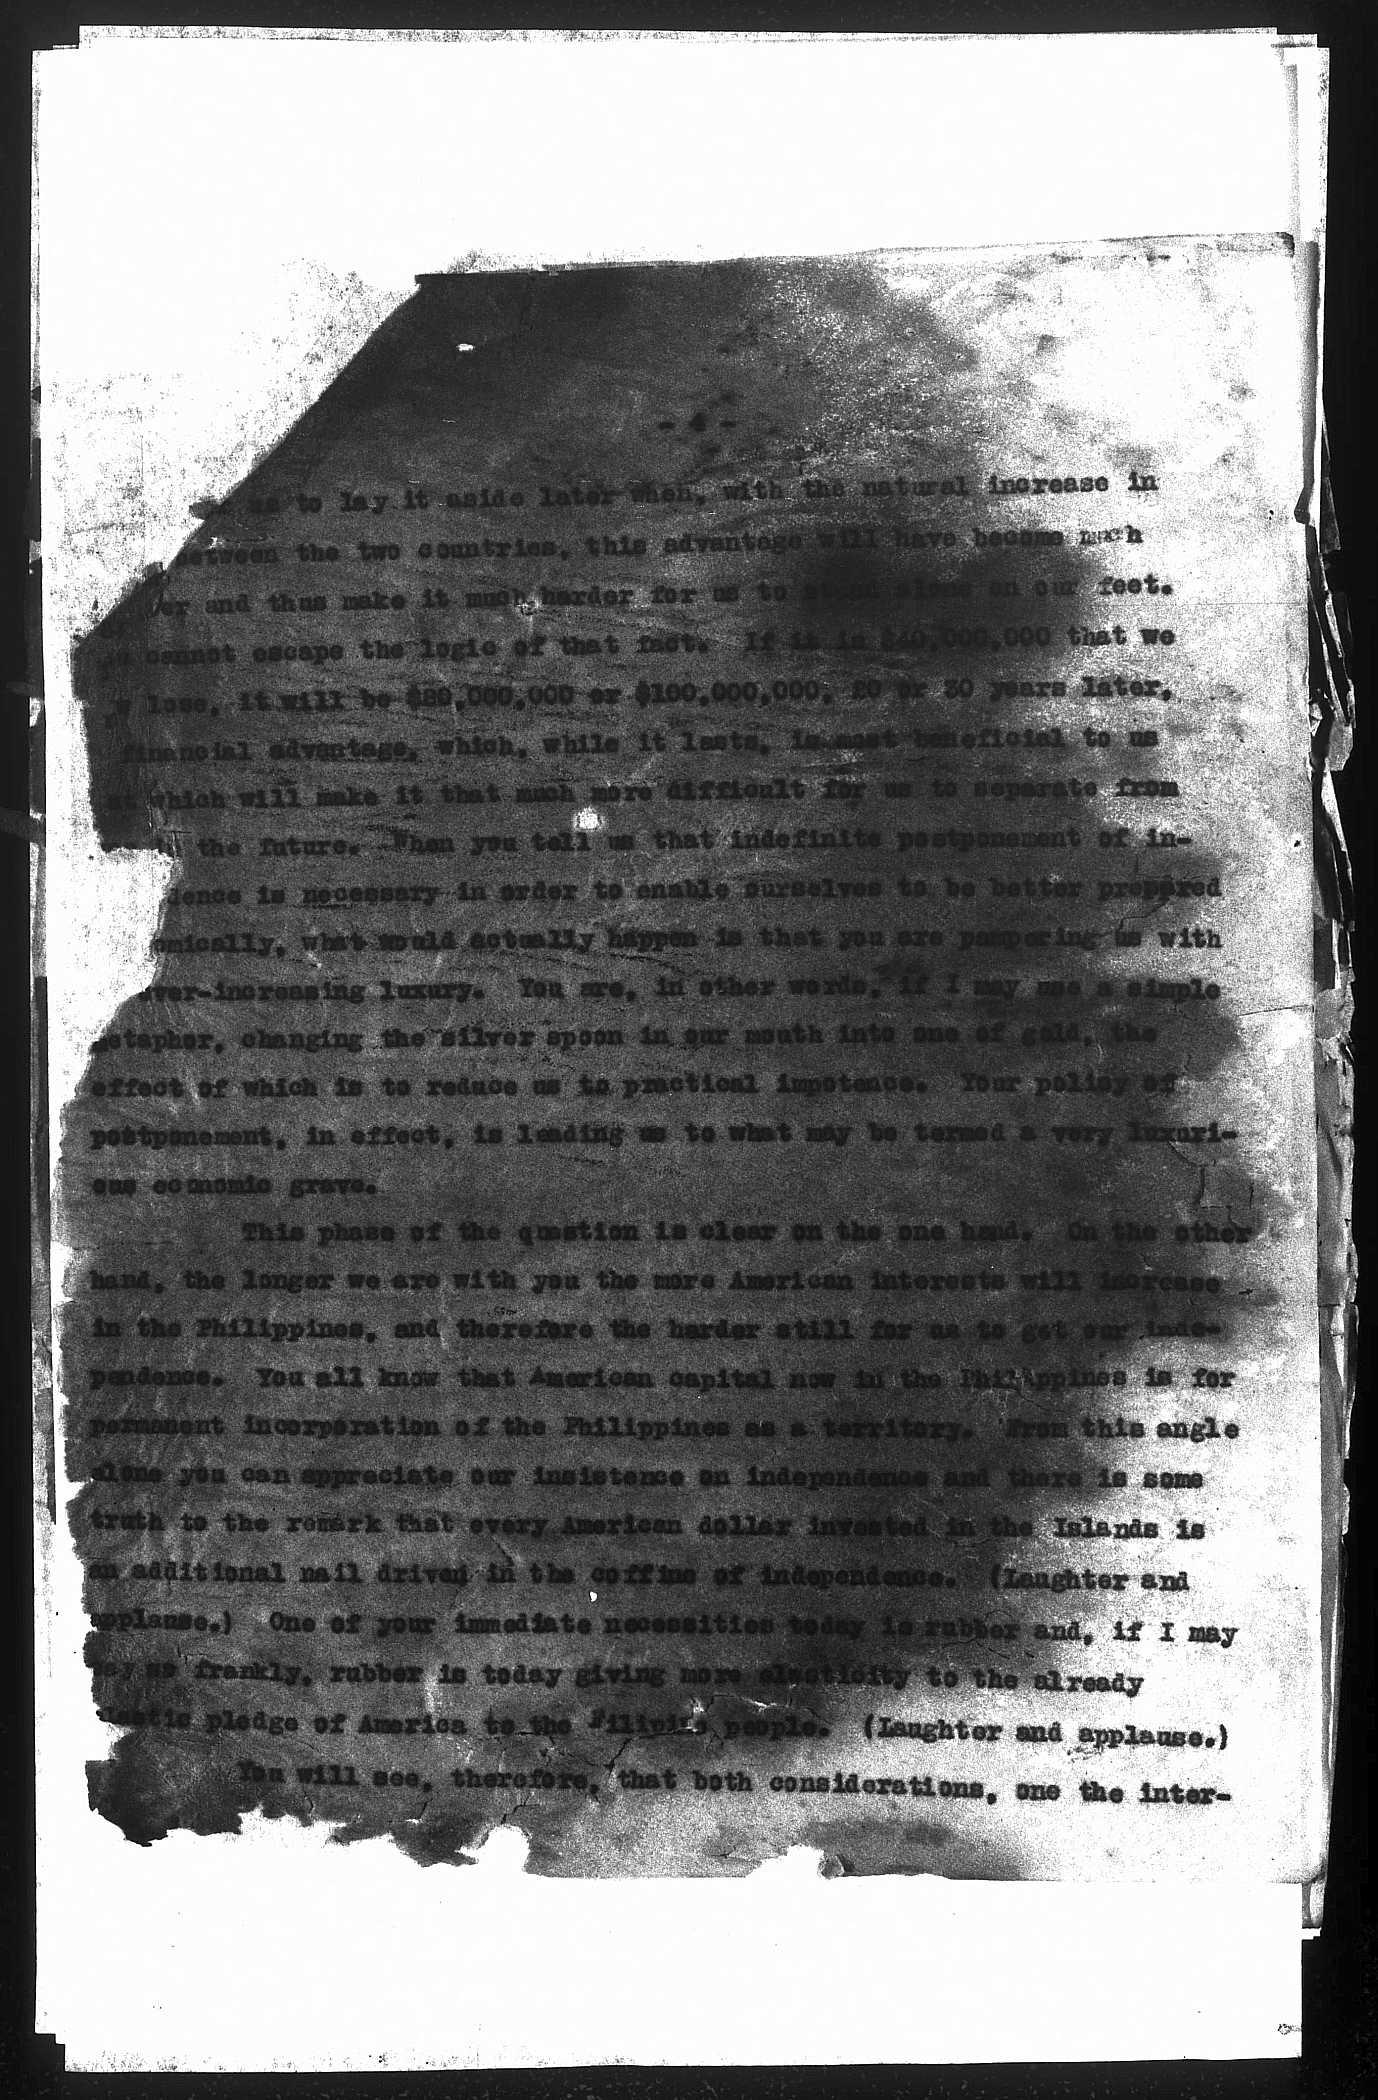 us to lay it aside later when, with the natural increase in
between the two countries, this advantage will have become much
er and thus make it much harder for us to stand alone on our feet.
cannot escape the logic of that fact. If it is $40,000,000 that we
lose, it will be $80,000,000 or $100,000,000, 20 or 30 years later,
financial advantage, which, while it lasts, is most beneficial to us
which will make it that much more difficult for us to separate from
the future. When you tell us that indefinite postponement of in-
dence is necessary in order to enable ourselves to be better prepared
omically, what would actually happen is that you are pampering us with
ever-increasing luxury. You are, in other words, if I may use a simple
metaphor, changing the silver spoon in our mouth into one of gold, the
effect of which is to reduce us to practical impotence. Your policy of
postponement, in effect, is leading us to what may be termed a very luxuri-
ous economic grave.
This phase of the question is clear on the one hand. On the other
hand, the longer we are with you the more American interests will increase
in the Philippines, and therefore the harder still for us to get our inde-
pendence. You all know that American capital now in the Philippines is for
permanent incorporation of the Philippines as a territory. From this angle
alone you can appreciate our insistence on independence and there is some
truth to the remark that every American dollar invested in the Islands is
an additional nail driven in the coffine of independence. (Laughter and
applause.) One of your immediate necessities today is rubber and, if I may
say so frankly, rubber is today giving more elasticity to the already
elastic pledge of America to the Filipino people. (Laughter and applause.)
You will see, therefore, that both considerations, one the inter-